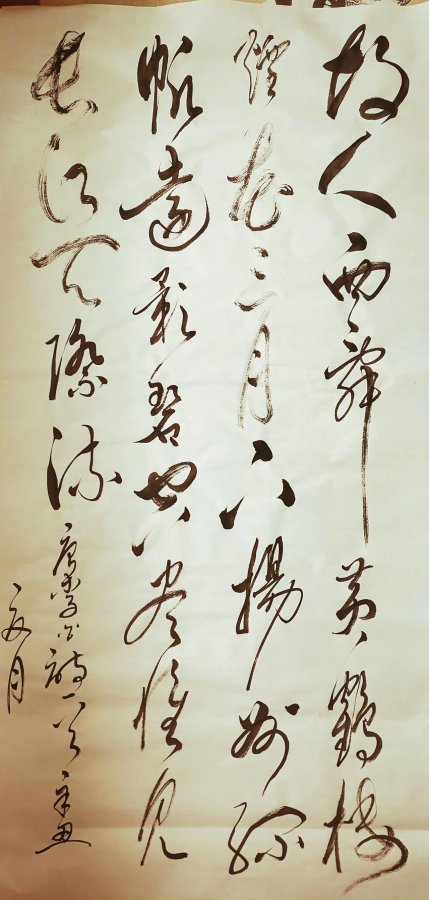 故人西辞黄鹤楼
烟花三月下扬州孤
帆远影碧空尽惟见
长江天际流
唐李白诗一首
月